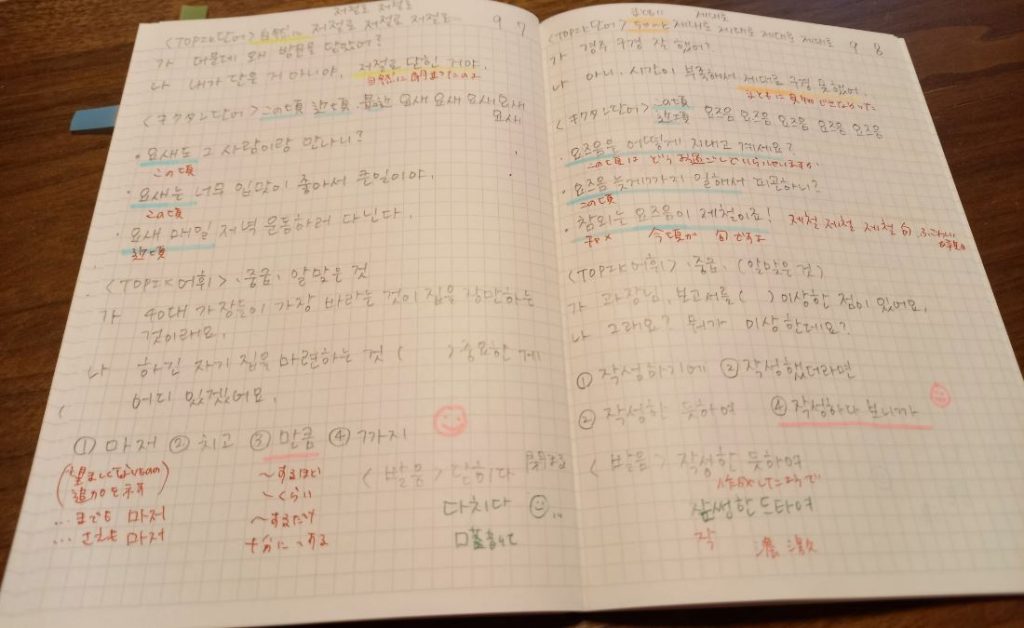 저절로 저절로
<TOPIK단어> 自然に 저절로 저절로 저절로 9 7
가 대문데 왜 방문을 닫았어?
나 내가 닫은 게 아니야. 저절로 닫힌 거야.
<キクタン단어> この頃 近頃 요새 요새 요새 요새
요새
・요새도 그 사람이랑 만나니?
この頃
・요새는 너무 입맛이 좋아서 큰일이야.
この頃
・요새 매일 저녁 운동하러 다닌다.
近頃
<TOPIK어휘>.중급. 알맞은 것
가 40대 가장들이 가장 바라는 것이 집을 장만하는
것이래요.
나 하긴 자기 집을 마련하는 것 ( )중요한 게
어디 있겠어요.
① 마저 ② 치고 ③ 만큼 ④ 까지
追加を示す
…までも 마저
…さえも 마저
~するほど
~くらい
~するだけ
十分に~する
<발음> 닫히다
다치다
제대로
<TOPIK단어> 제대로 제대로 제대로 제대로 9 8
가 경주 구경 잘 했어?
나 아니. 시간이 부족해서 제대로 구경 못했어.
<キクタン단어> この頃 요즈음 요즈음 요즈음 요즈음 요즈음
近頃
・요즈음은 어떻게 지내고 계세요?
この頃は どう お過ごしでいらっしゃいますか
・요즈음 늦게까지 일해서 피곤하니?
この頃
・참외는 요즈음이 제철이죠! 제철 제철 제철 旬
今頃が 旬ですよ
<TOPIK어휘>.중급. (알맞은 것)
가 과장님, 보고서를 ( ) 이상한 점이 있어요.
나 그래요? 뭐가 이상한데요?
① 작성하기에 ② 작성했더라면
② 작성한 듯하여 ④ 작성하다 보니까
<발음> 작성한 듯하여
작썽한드타여
작